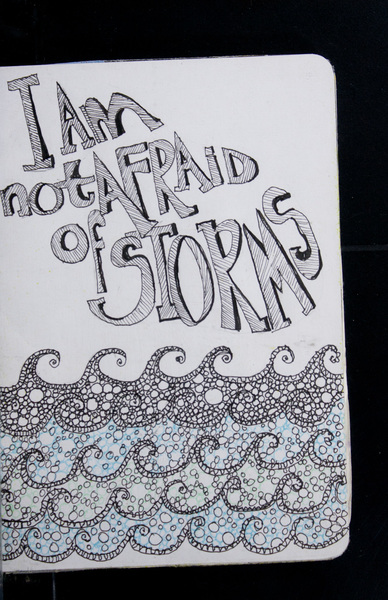 I Am
not AFRAiD
of STORMS